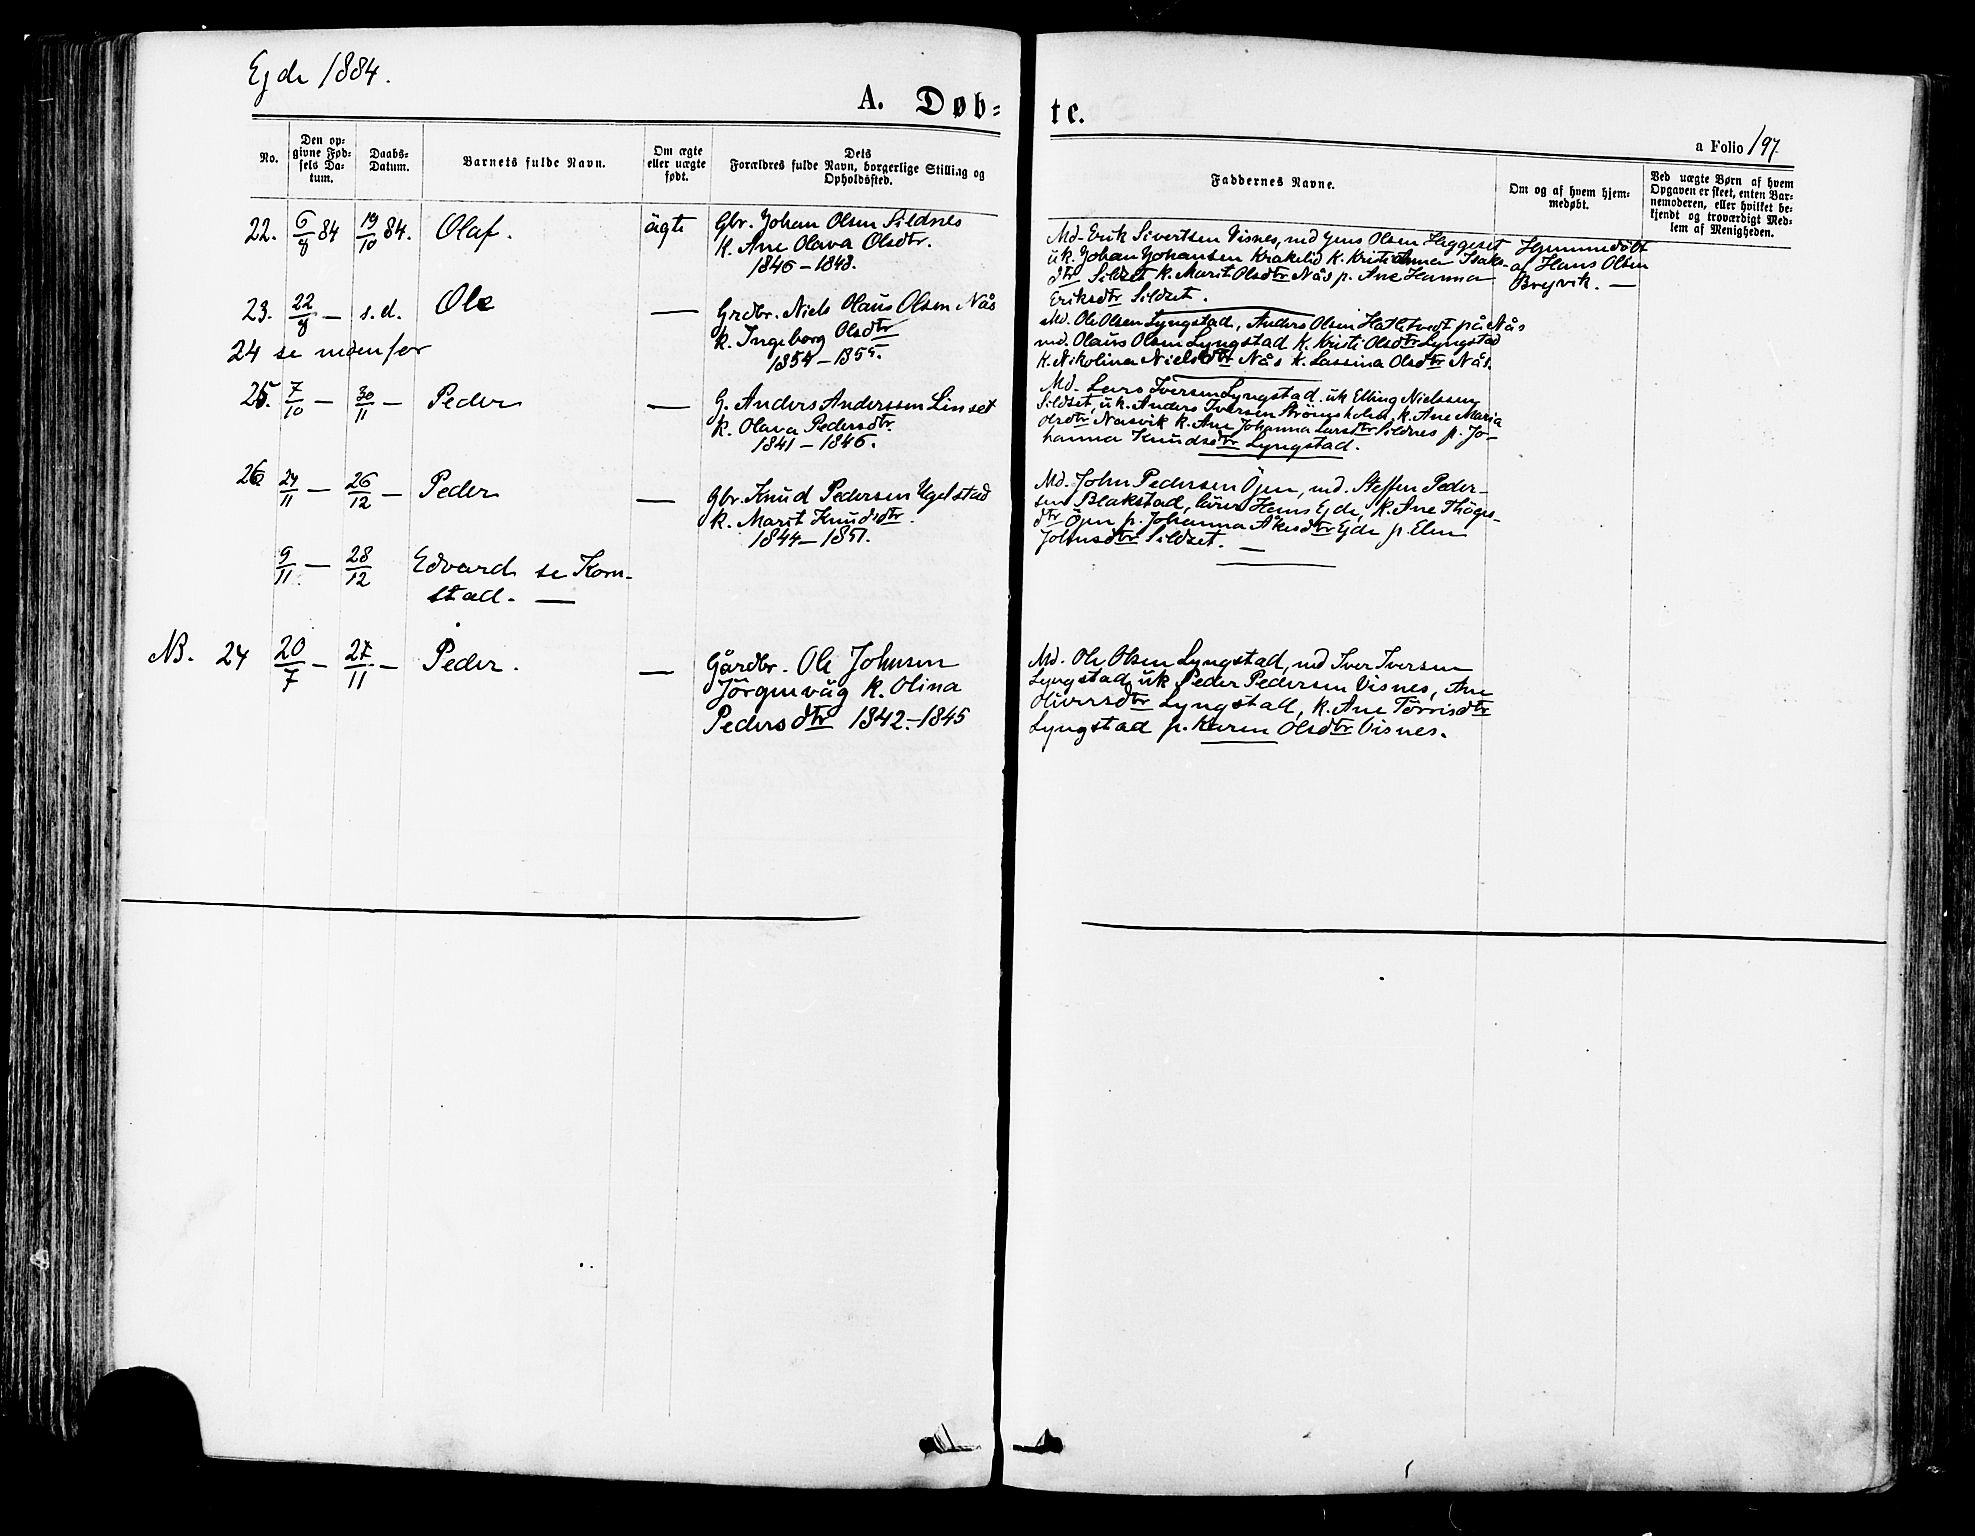 Ejde 1884.
A. Døb=
te.
a Folio 197.
No.
Den op-
givne Fød-
sels Da-
tum.
Daabs-
Datum.
Barnets fulde Navn.
Om ægte
eller uægte
født.
Dets
Forældres fulde Navn, borgerlige Stilling og
Opholdssted.
Faddernes Navne.
Om og af hvem hjem-
medøbt.
Ved uægte Børn af hvem
Opgaven er skeet, enten Bar-
nemoderen, eller hvilket be-
kjendt og troværdigt Med-
lem af Menigheden.
22. 6/8 84 19/10 84. Olaf. ägte
Gbr. Johan Olsen Sildnes
k. Ane Olava Olsdtr.
1846–1848.
Md. Erik Sivertsen Visnes, md Jens Olsen Haggeset
ük. Johan Johansen Krakelid k. Kristianna Isaks-
dtr Sildset k. Marit Olsdtr Nås p. Ane Hanna
Eriksdtr Sildset.
Hjemmedöbt
af Hans Olsen
Brejvik. —
23. 22/8 — s.d. Ole —
Grdbr. Niels Olaus Olsen Nås
k. Ingeborg Olsdtr
1854–1855.
Md. Ole Olsen Lyngstad, Anders Olsen Hatletvedt på Nås
md. Olaüs Olsen Lyngstad k. Kristi Olsdtr Lyngstad
k. Nikolina Nielsdtr Nås k. Lassina Olsdtr Nås.
24 se nedenfor
25. 7/10 — 30/11 — Peder —
G. Anders Anderssen Linset
k. Olava Pedersdtr.
1841–1846.
Md. Lars Iversen Lyngstad. ük Elling Nielsen
Sildset, ük. Anders Iversen Strömsholm, k. Ane Maria
Olsdtr Nasvik k. Ane Johanna Larsdtr Sildnes p. Jo-
hanna Knudsdtr Lyngstad.
26 24/11 — 26/12 — Peder —
Gbr. Knud Pedersen Ugelstad
k. Marit Knudsdtr.
1844–1851.
Md. John Pedersen Öjen, md. Steffen Peder-
sen Blakstad, lärer Hans Ejde, k. Ane
dtr Öjen p. Johanna Åkesdtr Ejde p Elen
Johnsdtr Sildset. —
9/11. — 28/12 Edvard se Korn-
stad. —
NB. 24 20/7 — 27/11 — Peder. —
Gårdbr. Ole Johnsen
Jörgenvåg k. Olina
Pedersdtr 1842–1845
Md. Ole Olsen Lyngstad, md Iver Iversen
Lyngstad, ük Peder Pedersen Visnes, Ane
Oliversdtr Lyngstad, k. Ane Törrisdtr
Lyngstad p. Karen Olsdtr Visnes.